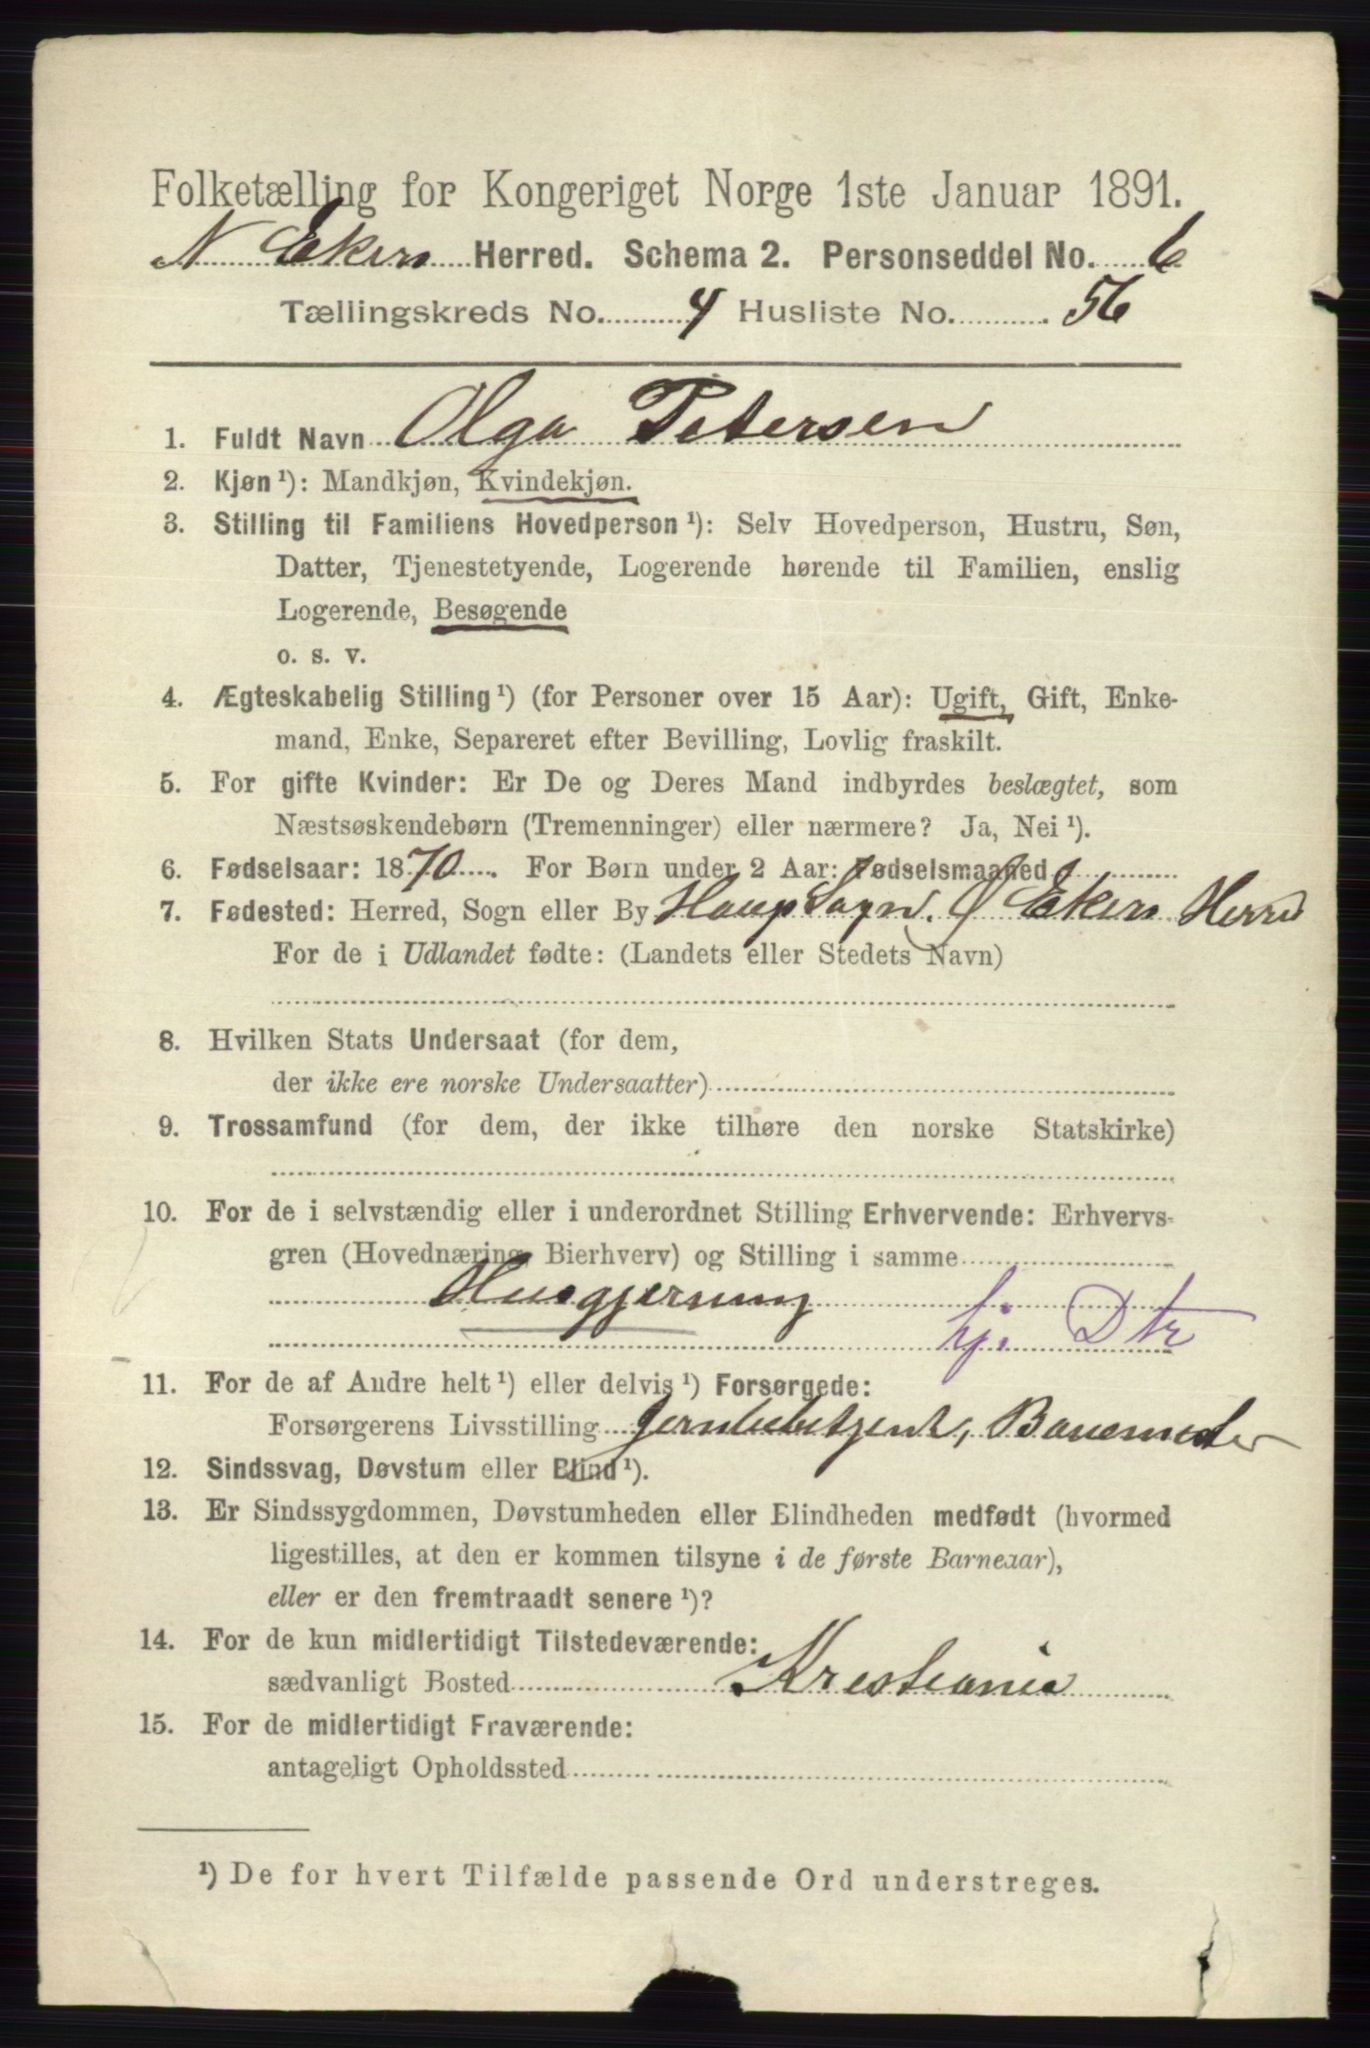 Folketælling for Kongeriget Norge 1ste Januar 1891.
N Ekers Herred. Schema 2. Personseddel No. 6
Tællingskreds No. 4 Husliste No. 56
1. Fuldt Navn Olga Petersen
2. Kjøn ¹): Mandkjøn, Kvindekjøn.
3. Stilling til Familiens Hovedperson ¹): Selv Hovedperson, Hustru, Søn,
Datter, Tjenestetyende, Logerende hørende til Familien, enslig
Logerende, Besøgende
o. s. v.
4. Ægteskabelig Stilling ¹) (for Personer over 15 Aar): Ugift, Gift, Enke-
mand, Enke, Separeret efter Bevilling, Lovlig fraskilt.
5. For gifte Kvinder: Er De og Deres Mand indbyrdes beslægtet, som
Næstsøskendebørn (Tremenninger) eller nærmere? Ja, Nei ¹).
6. Fødselsaar: 1870. For Børn under 2 Aar: Fødselsmaaned
7. Fødested: Herred, Sogn eller By Haug Sogn. Ø Ekers Herred
For de i Udlandet fødte: (Landets eller Stedets Navn)
8. Hvilken Stats Undersaat (for dem,
der ikke ere norske Undersaatter)
9. Trossamfund (for dem, der ikke tilhøre den norske Statskirke)
10. For de i selvstændig eller i underordnet Stilling Erhvervende: Erhvervs-
gren (Hovednæring, Bierhverv) og Stilling i samme
Husgjerning
hj. Dtr
11. For de af Andre helt ¹) eller delvis ¹) Forsørgede:
Forsørgerens Livsstilling Jernbebetjent, Banemester
12. Sindssvag, Døvstum eller Blind ¹).
13. Er Sindssygdommen, Døvstumheden eller Blindheden medfødt (hvormed
ligestilles, at den er kommen tilsyne i de første Barneaar),
eller er den fremtraadt senere ¹)?
14. For de kun midlertidigt Tilstedeværende:
sædvanligt Bosted Kristiania
15. For de midlertidigt Fraværende:
antageligt Opholdssted
¹) De for hvert Tilfælde passende Ord understreges.